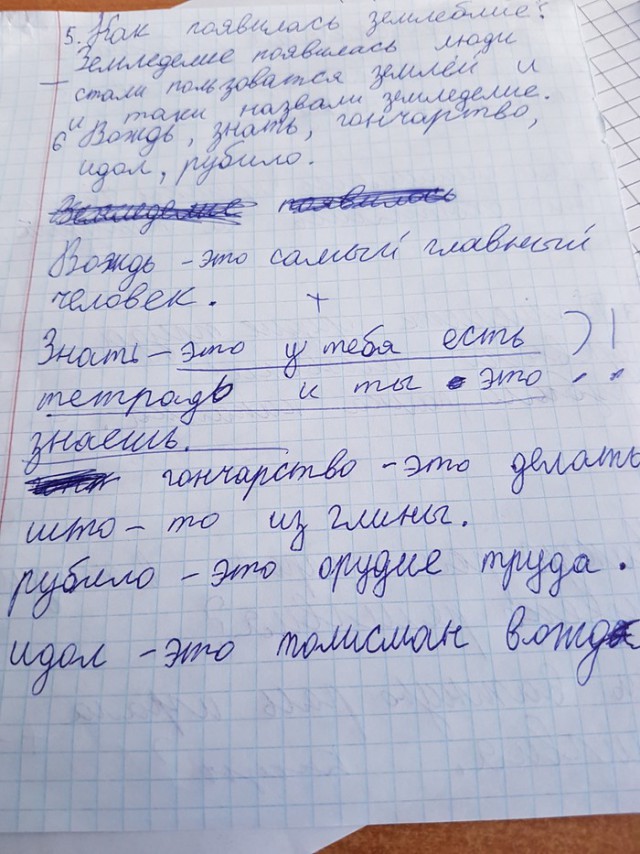 5. Как появилась землеблие?
Земледелие появилась люди
стали пользоватся землёй и
и таки назвали земледелие.
6 Вождь, знать, гончарство,
идол, рубило.
Вождь - это самый главный
человек. +
Знать - это у тебя есть
тетрадь и ты это
знаешь.
гончарство - это делать
што - то из глины.
рубило - это орудие труда.
идол - это толисман вождя